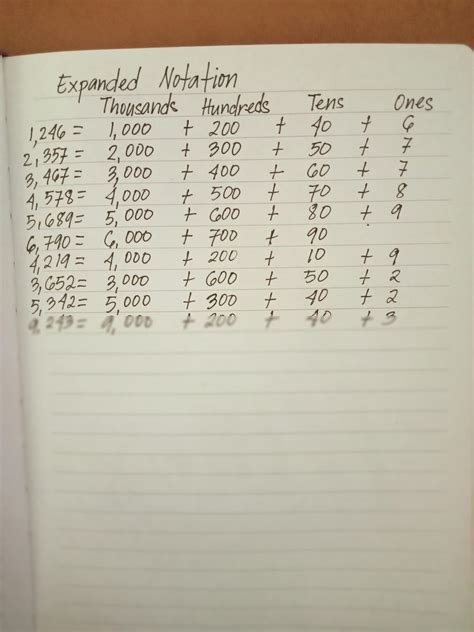 Expanded Notation
Thousands Hundreds Tens Ones
1,246 = 1,000 + 200 + 40 + 6
2,357 = 2,000 + 300 + 50 + 7
3,467 = 3,000 + 400 + 60 + 7
4,578 = 4,000 + 500 + 70 + 8
5,689 = 5,000 + 600 + 80 + 9
6,790 = 6,000 + 700 + 90
4,219 = 4,000 + 200 + 10 + 9
3,652 = 3,000 + 600 + 50 + 2
5,342 = 5,000 + 300 + 40 + 2
9,243 = 9,000 + 200 + 40 + 3